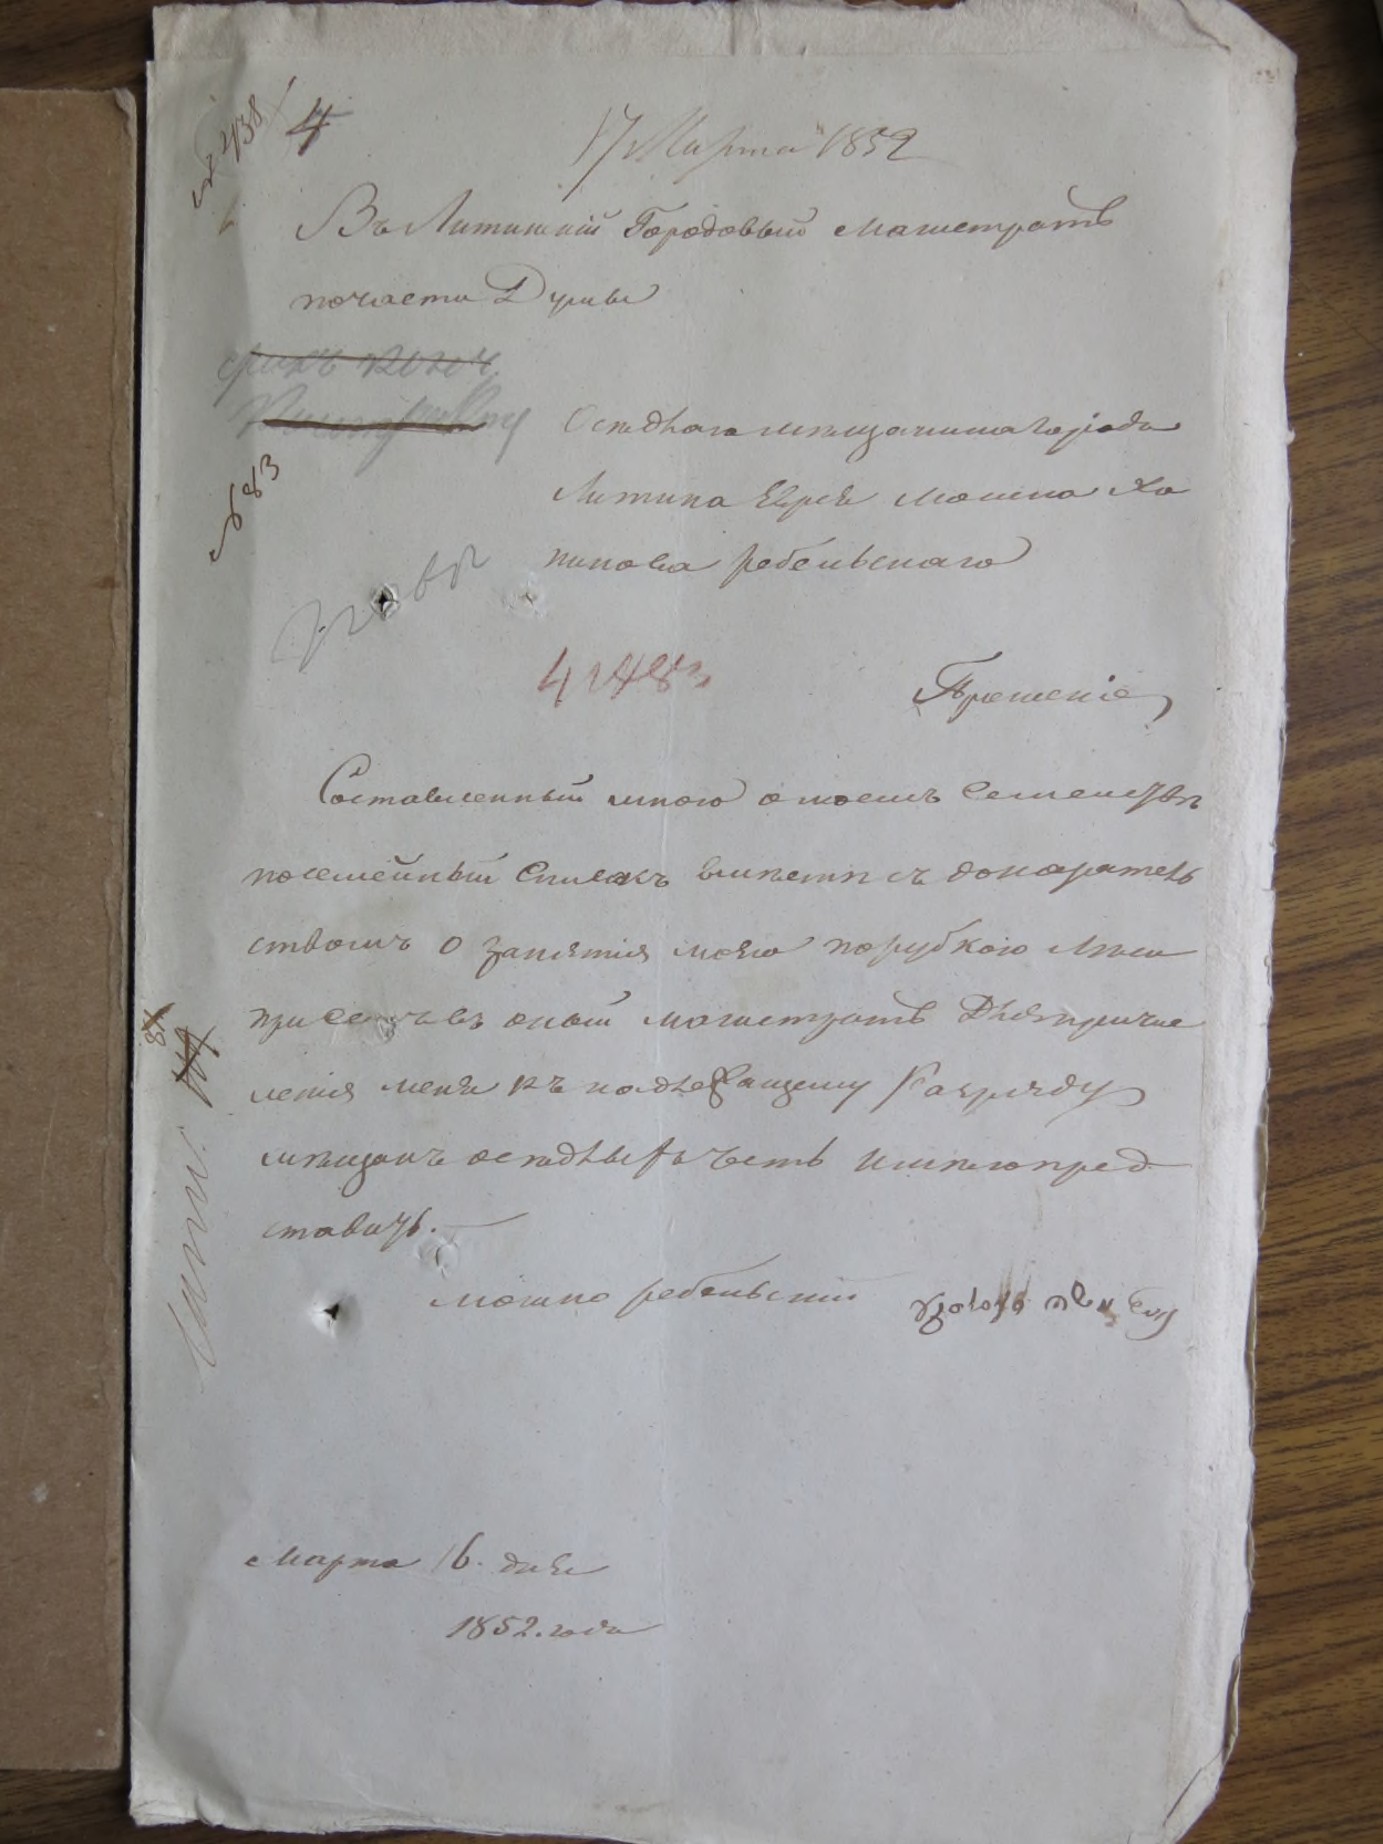 № 438
4
17 Марта 1852
Въ Литинскій Городовый магистратъ
по части Думы
№ 83
Оседлаго мещанина города
Литина Еврея Мошка Ха
скаго
Прошеніе
Составленный мною о моемъ Семействе
посемейный Списокъ вместе съ доказатель
ствомъ о занятія моего порубкою леса
при семъ въ оный магистратъ Для причис
ленія меня къ надлежащему Разряду
мещанъ оседлыхъ честь имею пред
ставить.
Мошко
Марта 16. дня
1852. года